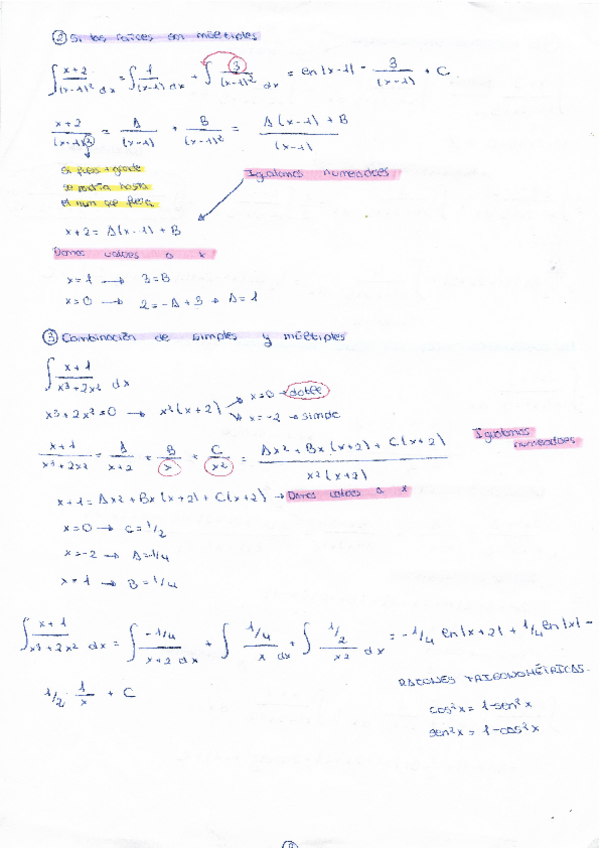 ② Si las raíces son múltiples
∫ x+2/(x-1)² dx = ∫ 1/(x-1) dx + ∫ 3/(x-1)² dx = en|x-1| - 3/(x-1) + C
x+2/(x-1)² = A/(x-1) + B/(x-1)² = A(x-1)+B/(x-1)
Si fuese + grande
se haría hasta
el num que fuera.
Igualamos numeradores
x+2 = A(x-1) + B
Damos valores a x
x=1 → 3=B
x=0 → 2=-A+3 → A=1
③ Combinación de simples y múltiples
∫ x+1/x³+2x² dx
x³+2x²=0 → x²(x+2) x=0 → doble
x=-2 → simple
x+1/x³+2x² = A/x+2 + B/x + C/x² = Ax²+Bx(x+2)+C(x+2)/x²(x+2)
Igualamos
numeradores
x+1 = Ax²+Bx(x+2)+C(x+2) → Damos valores a x
x=0 → C=1/2
x=-2 → A=-1/4
x=1 → B=1/4
∫ x+1/x³+2x² dx = ∫ -1/4/x+2 dx + ∫ 1/4/x dx + ∫ 1/2/x² dx = -1/4 en|x+2| + 1/4 en|x| -
1/2 · 1/x + C
RAZONES TRIGONOMÉTRICAS.
cos²x = 1-sen²x
sen²x = 1-cos²x